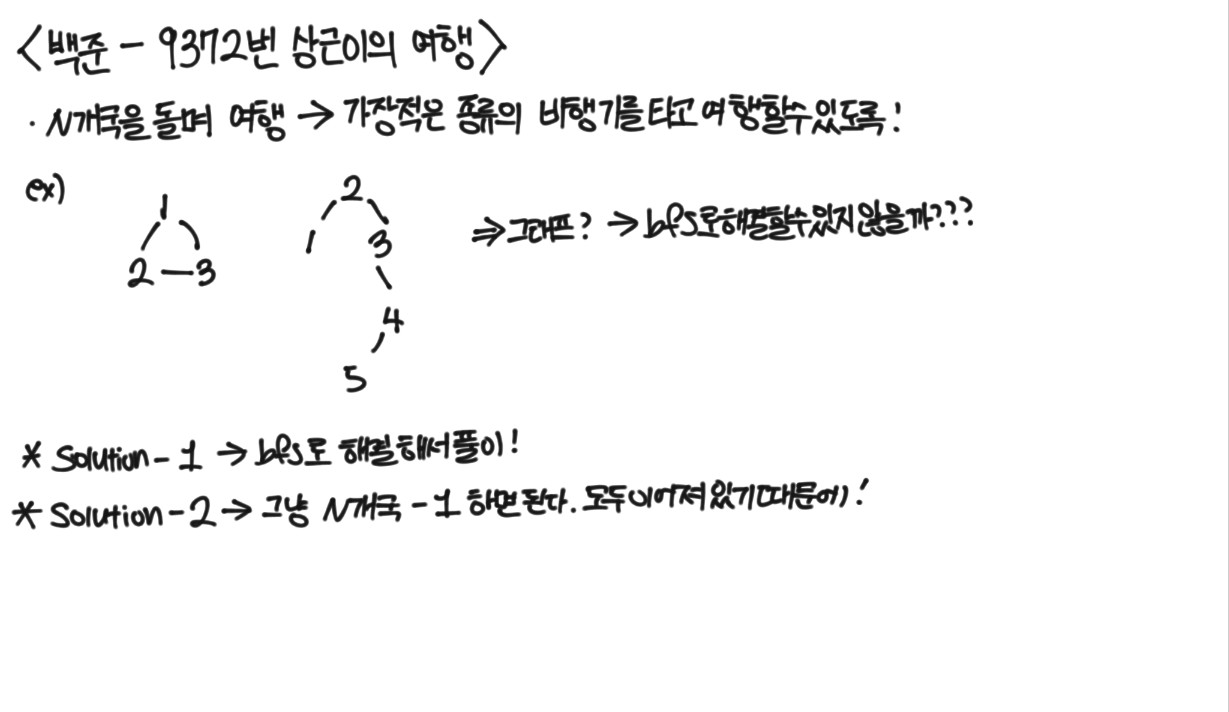 <백준 - 9372번 상근이의 여행>
· N개국을 돌며 여행 → 가장적은 종류의 비행기를 타고 여행할수있도록!
ex)
1
2 - 3
2
1 3
4
5
⇒ 그래프? → bfs로해결할수있지않을까???
* Solution - 1 → bfs로 해결해서풀이!
* Solution - 2 → 그냥 N개국 - 1 하면된다. 모두이어져있기때문에!